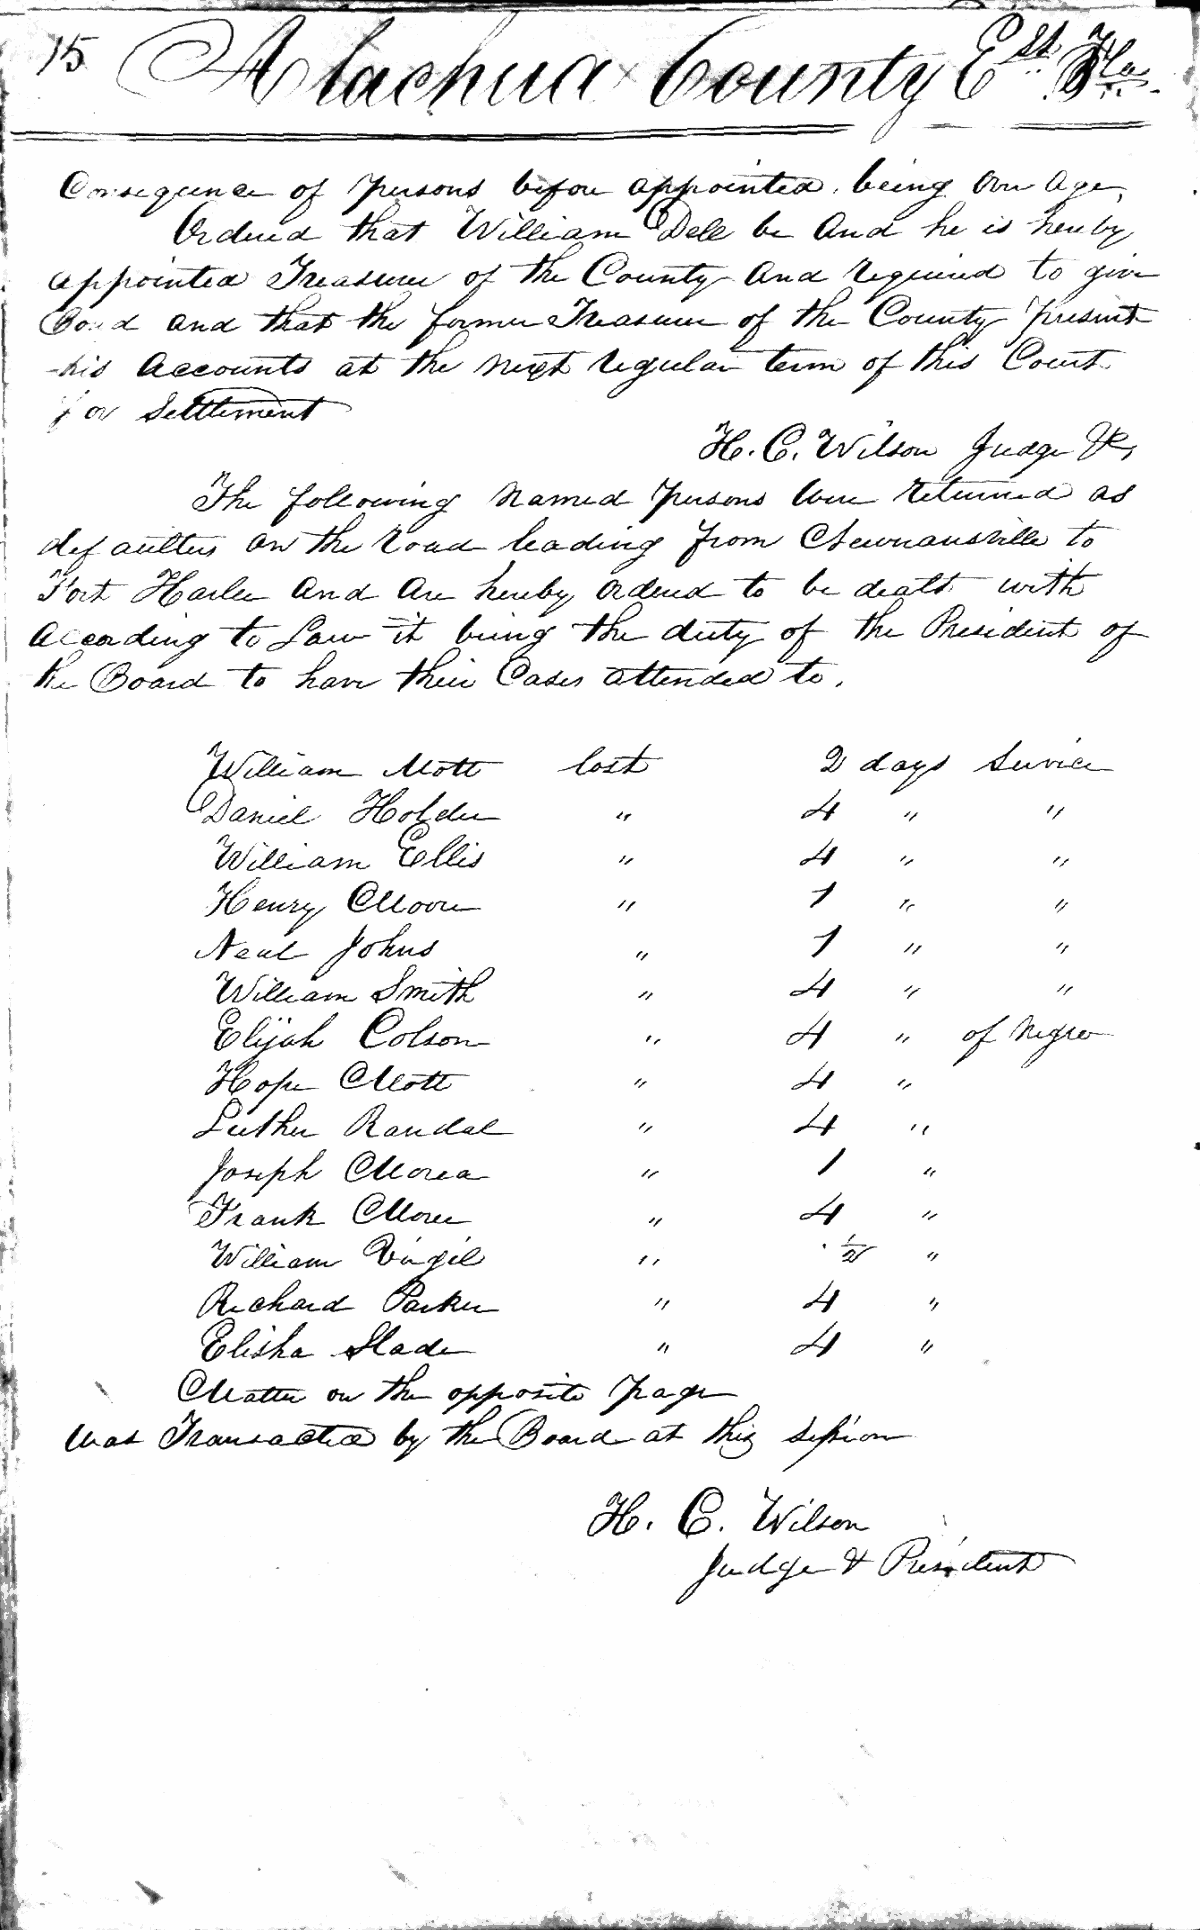 15 Alachua County Est Fla.
Consequence of persons before appointed, being over age,
Ordered that William Dell be and he is hereby
appointed Treasurer of the County and required to give
Bond and that the former Treasurer of the County present
his accounts at the next regular term of this Court
for Settlement
H. C. Wilson Judge &c,
The following named persons were returned as
defaulters on the road leading from Newnansville to
Fort Harlee and are hereby ordered to be dealt with
according to Law it being the duty of the President of
the Board to have their Cases attended to.
William Mott lost 2 days Service
Daniel Holder " 4 " "
William Ellis " 4 " "
Henry Moore " 1 " "
Neal Johns " 1 " "
William Smith " 4 " "
Elijah Colson " 4 " of Negro
Hope Mott " 4 "
Luther Randal " 4 "
Joseph " 1 "
Frank " 4 "
William Virgil " ½ "
Richard Parker " 4 "
Elisha Slade " 4 "
Matter on the opposite page
was Transacted by the Board at this session
H. C. Wilson
Judge & President